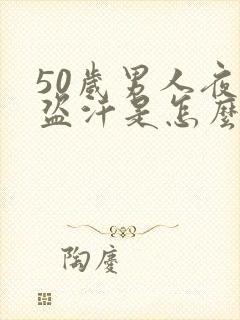 50歲男人夜
盜汗是怎麼
陶慶